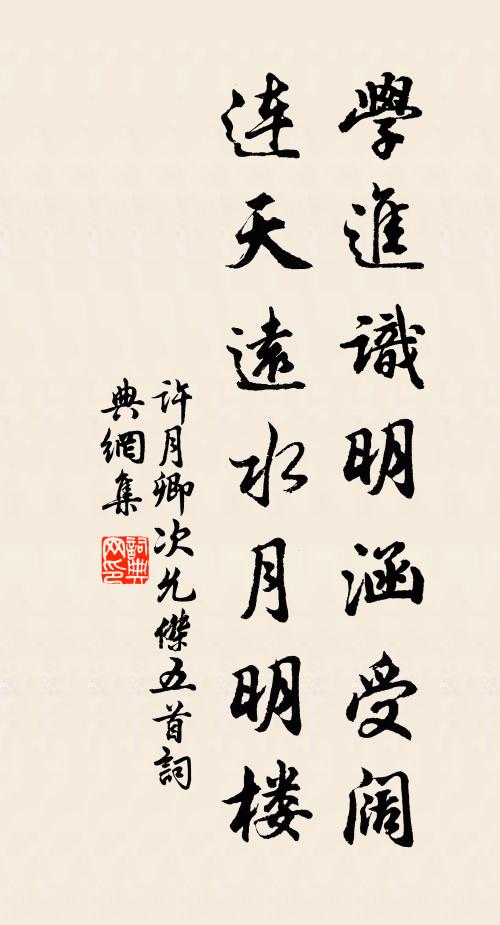 學進識明涵受阔
連天遠水月明楼
許月卿次允傑五首詞
典網集
詞典網印